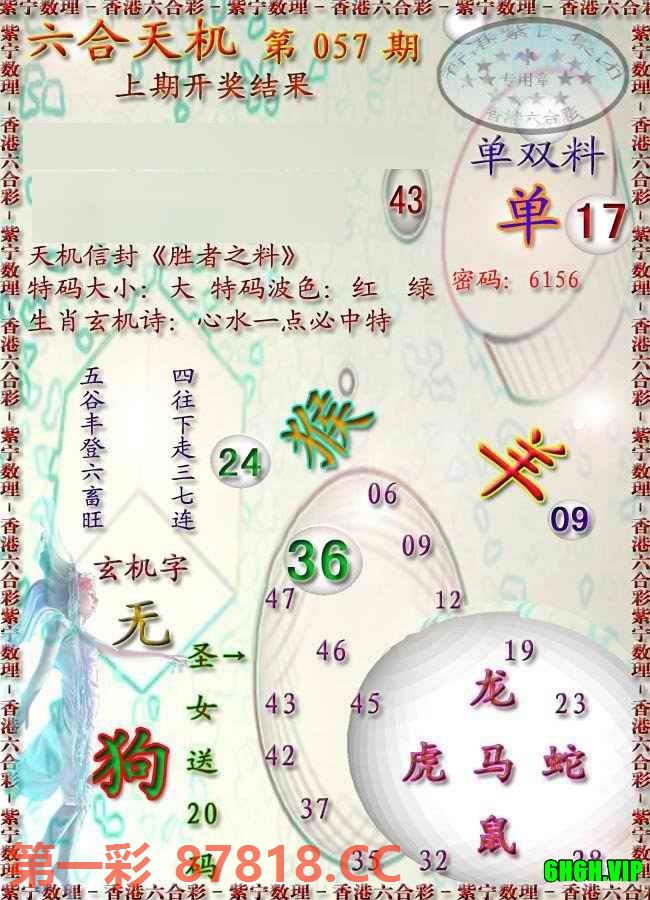 紫宁数理－香港六合彩－紫宁数理－香港六合彩－紫宁数理－香港六合彩
六合天机 第 057 期
上期开奖结果
专用章
香港六合彩
单双料
43
单 17
天机信封《胜者之料》
特码大小：大 特码波色：红 绿
密码：6156
生肖玄机诗：心水一点必中特
五谷丰登六畜旺
四往下走三七连
猴
24
羊
09
06
36
09
玄机字
47
12
无
圣女送20码→
46
19
龙
43
45
23
狗
虎 马 蛇
42
37
鼠
35
32
第一彩 87818.CC
6H6H.VIP
紫宁数理－香港六合彩－紫宁数理－香港六合彩－紫宁数理－香港六合彩